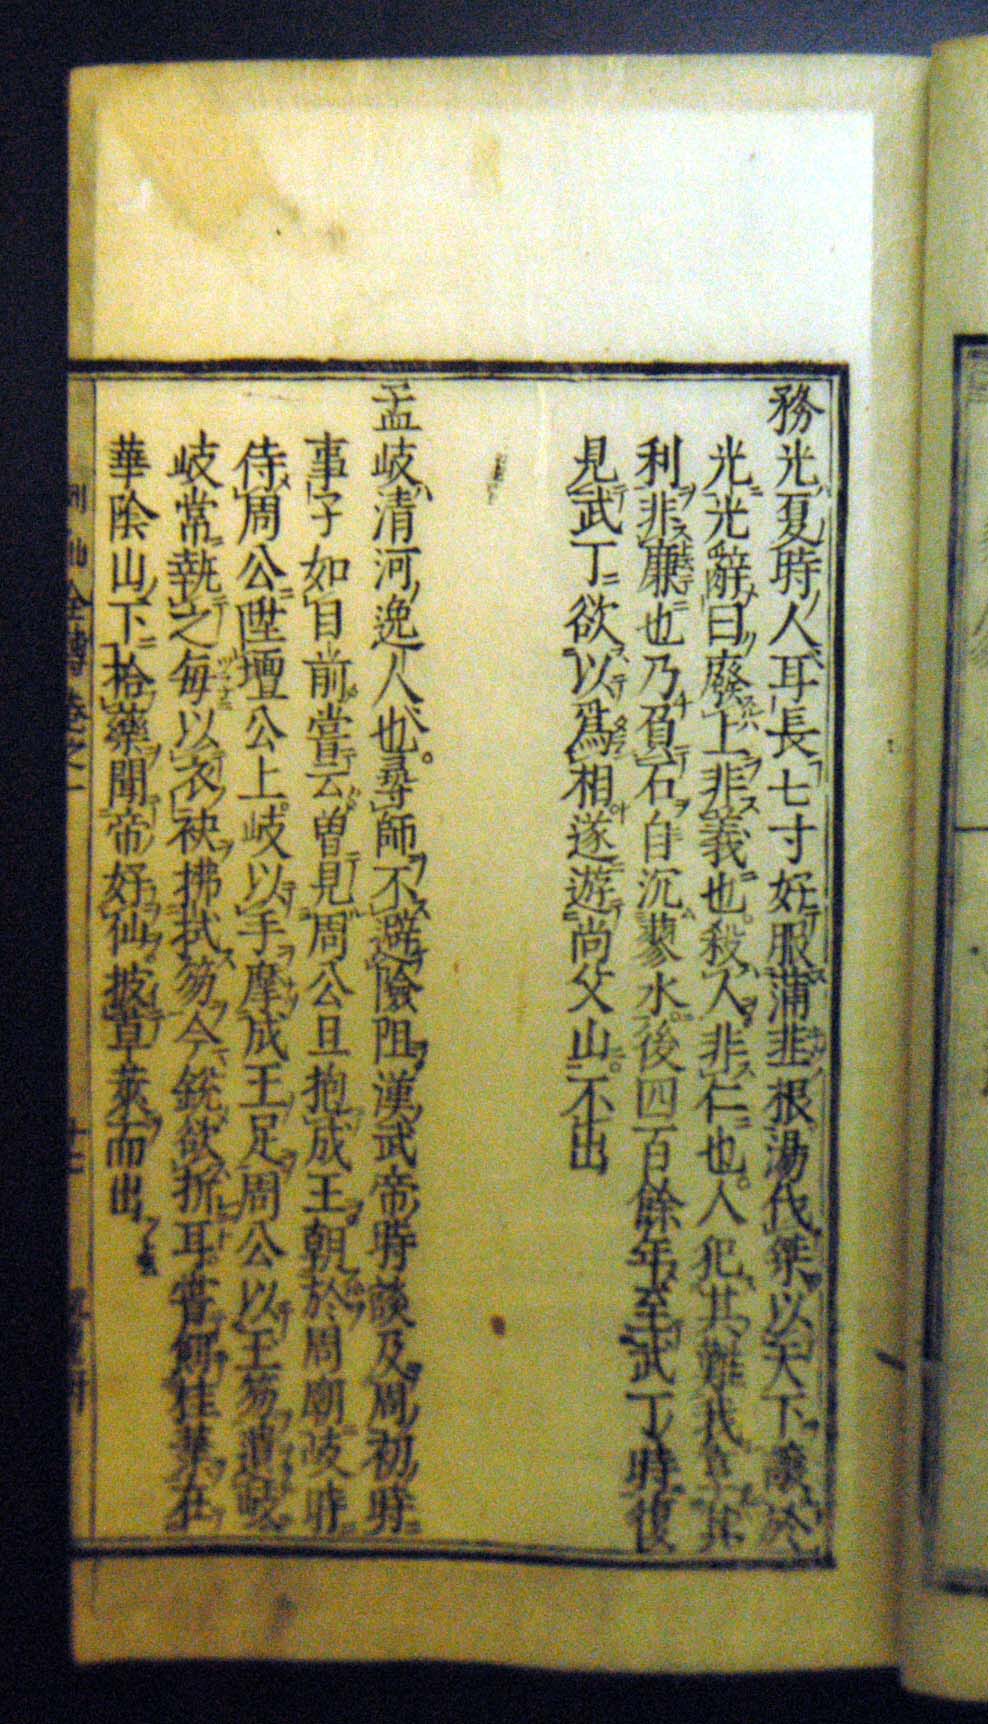 務光夏時人耳長七寸好服蒲韭根湯伐桀以天下讓於
光光辭曰廢上非義也殺人非仁也人犯其難我享其
利非廉也乃負石自沉蓼水後四百餘年至武丁時復
見武丁欲以為相遂遊尚父山不出
孟岐清河逸人也。尋師不避險阻漢武帝時談及周初時
事了如目前嘗云曾見周公旦抱成王朝於周廟岐時
侍周公陞壇公上岐以手摩成王足周公以玉笏遺岐
岐常執之每以衣袂拂拭笏今銳欲折耳嘗餌桂葉在
華陰山下拾藥聞帝好仙披草萊而出
列仙全傳卷之一